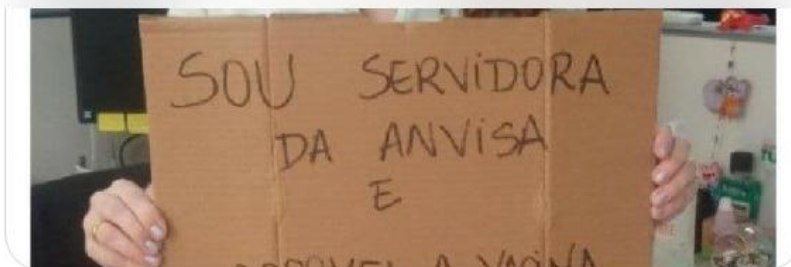 SOU SERVIDORA
DA ANVISA
E
A